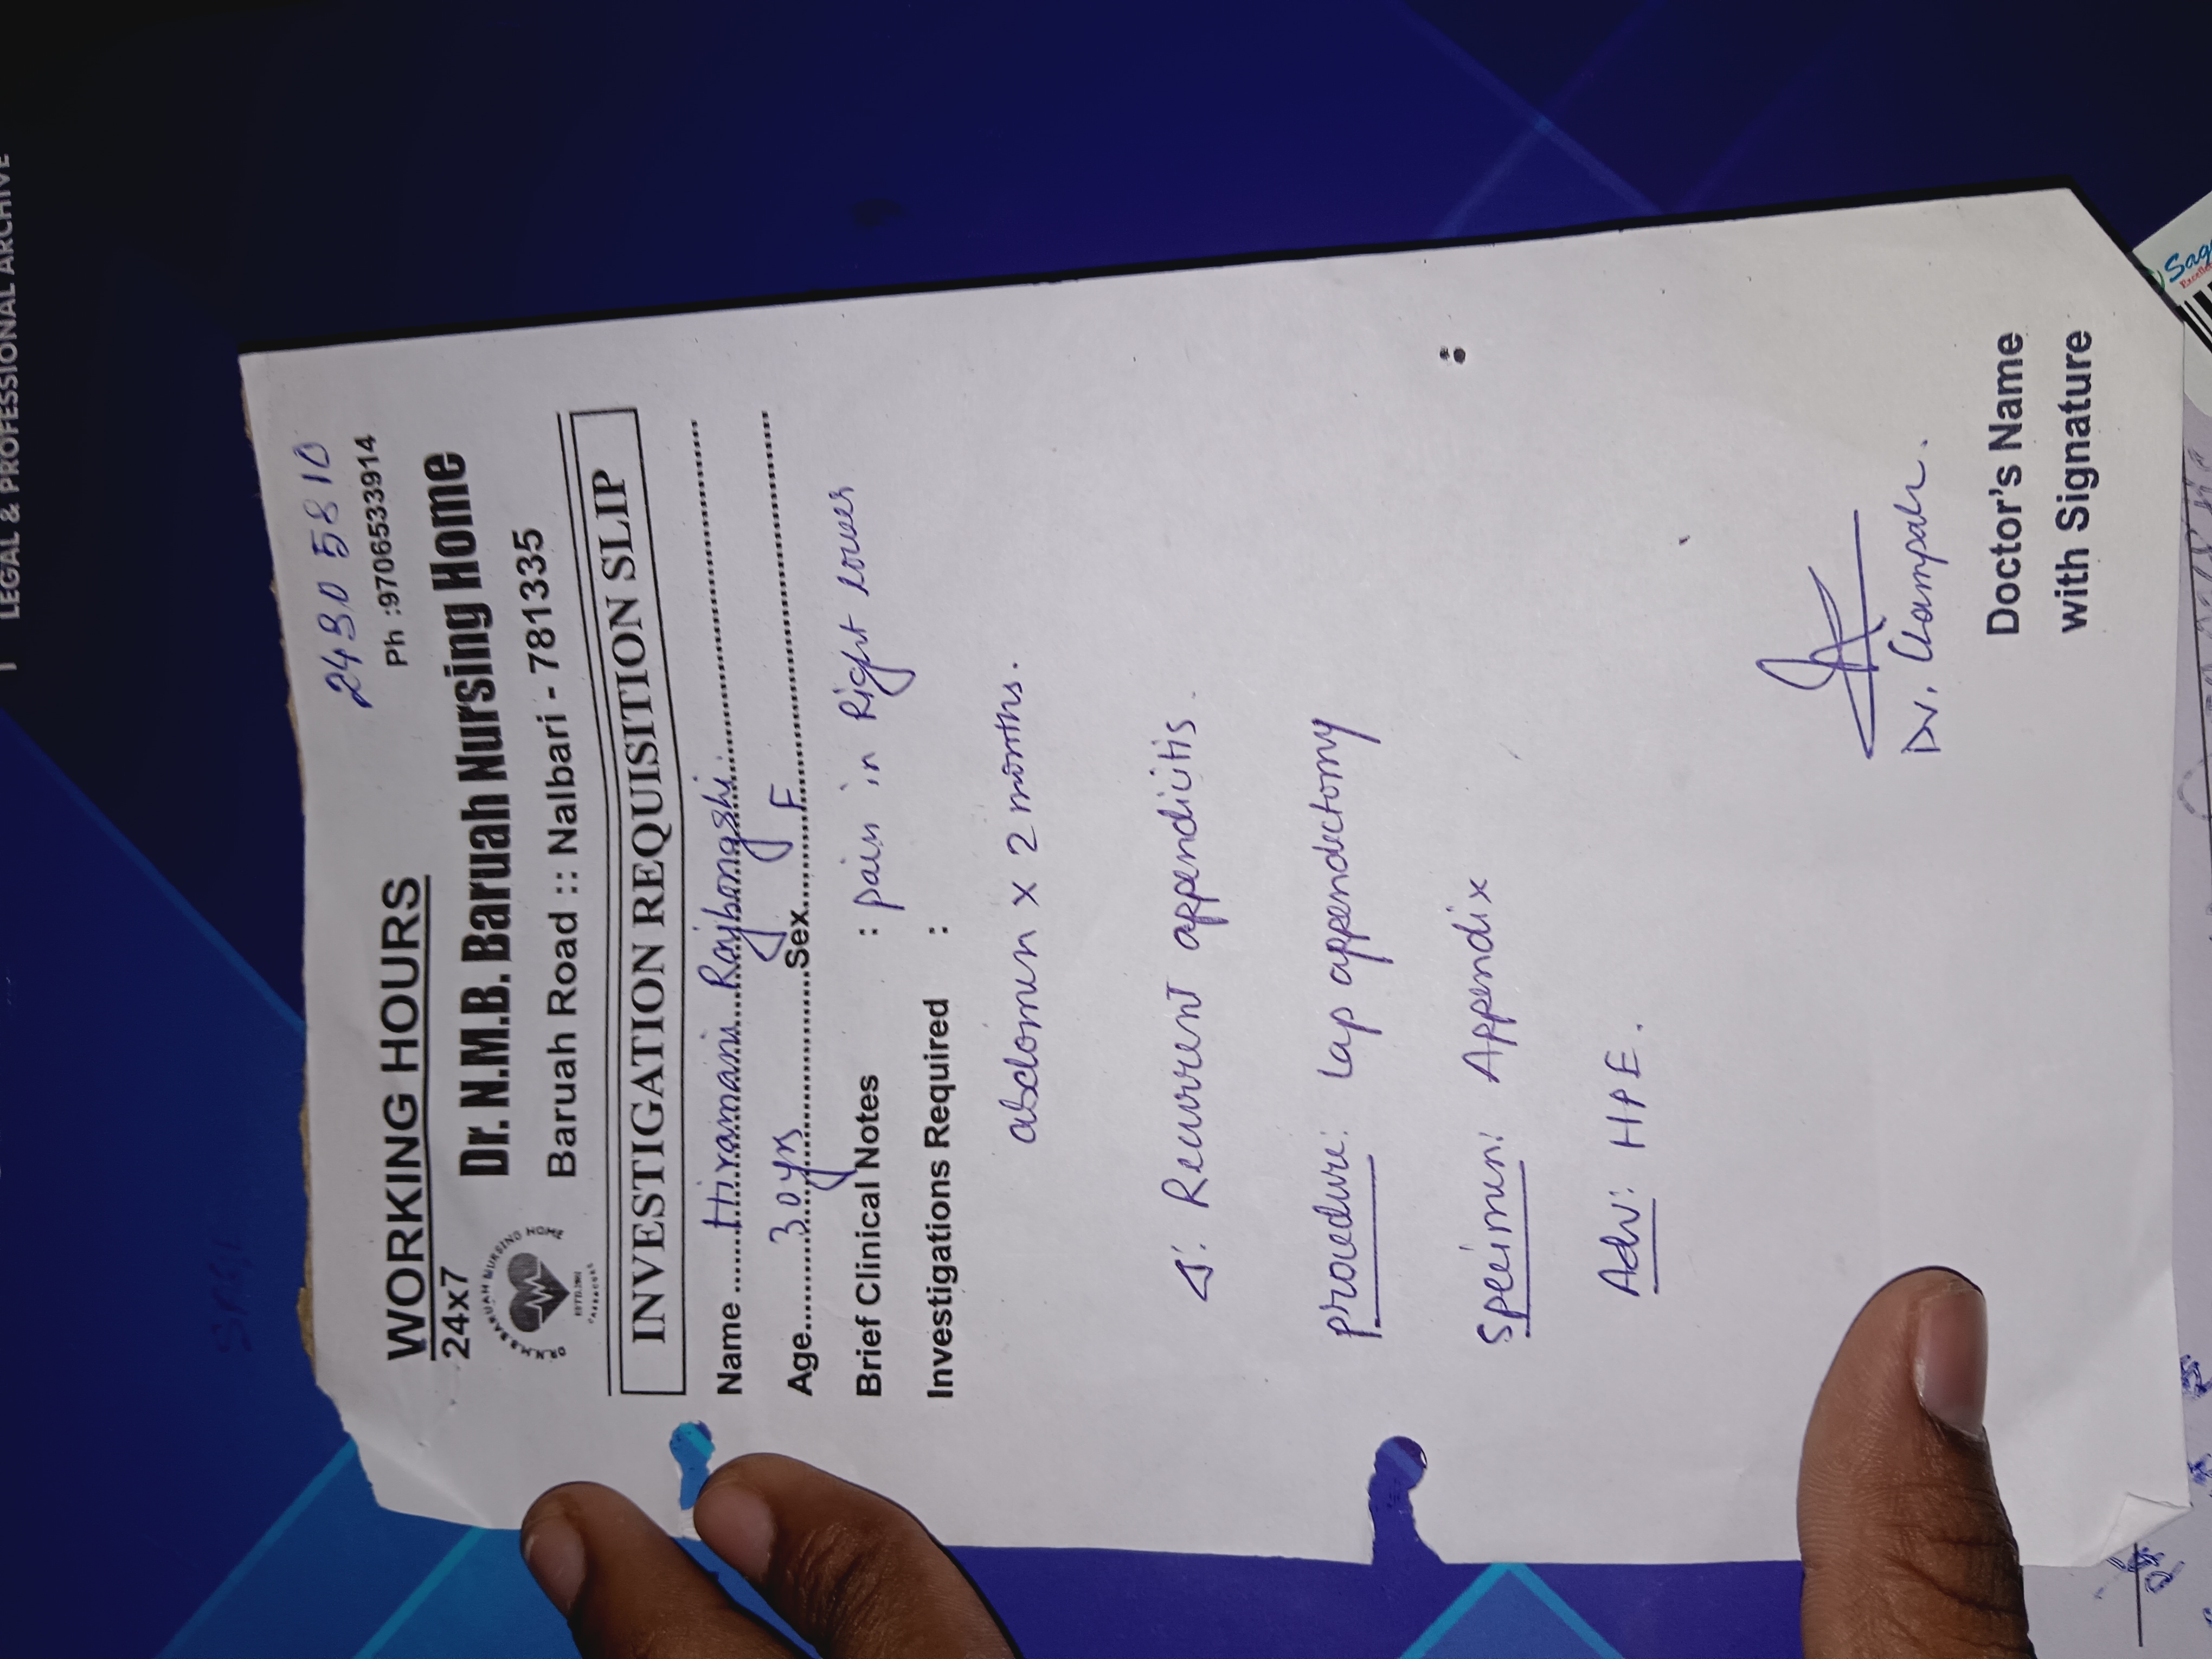 LEGAL & PROFESSIONAL ARCHIVE
24305810
WORKING HOURS
24x7
Ph :9706533914
Dr. N.M.B. Baruah Nursing Home
Baruah Road :: Nalbari - 781335
DR. N.M.B BARUAH NURSING HOME
INVESTIGATION REQUISITION SLIP
Name ........Hiramani Rajbongshi........
Age........30 yrs........Sex........F........
Brief Clinical Notes : pain in Right lower
Investigations Required :
abdomen x 2 months.
Δ: Recurrent appendicitis.
Procedure: Lap appendectomy
Specimen: Appendix
Adv: HPE.
Doctor's Name
with Signature